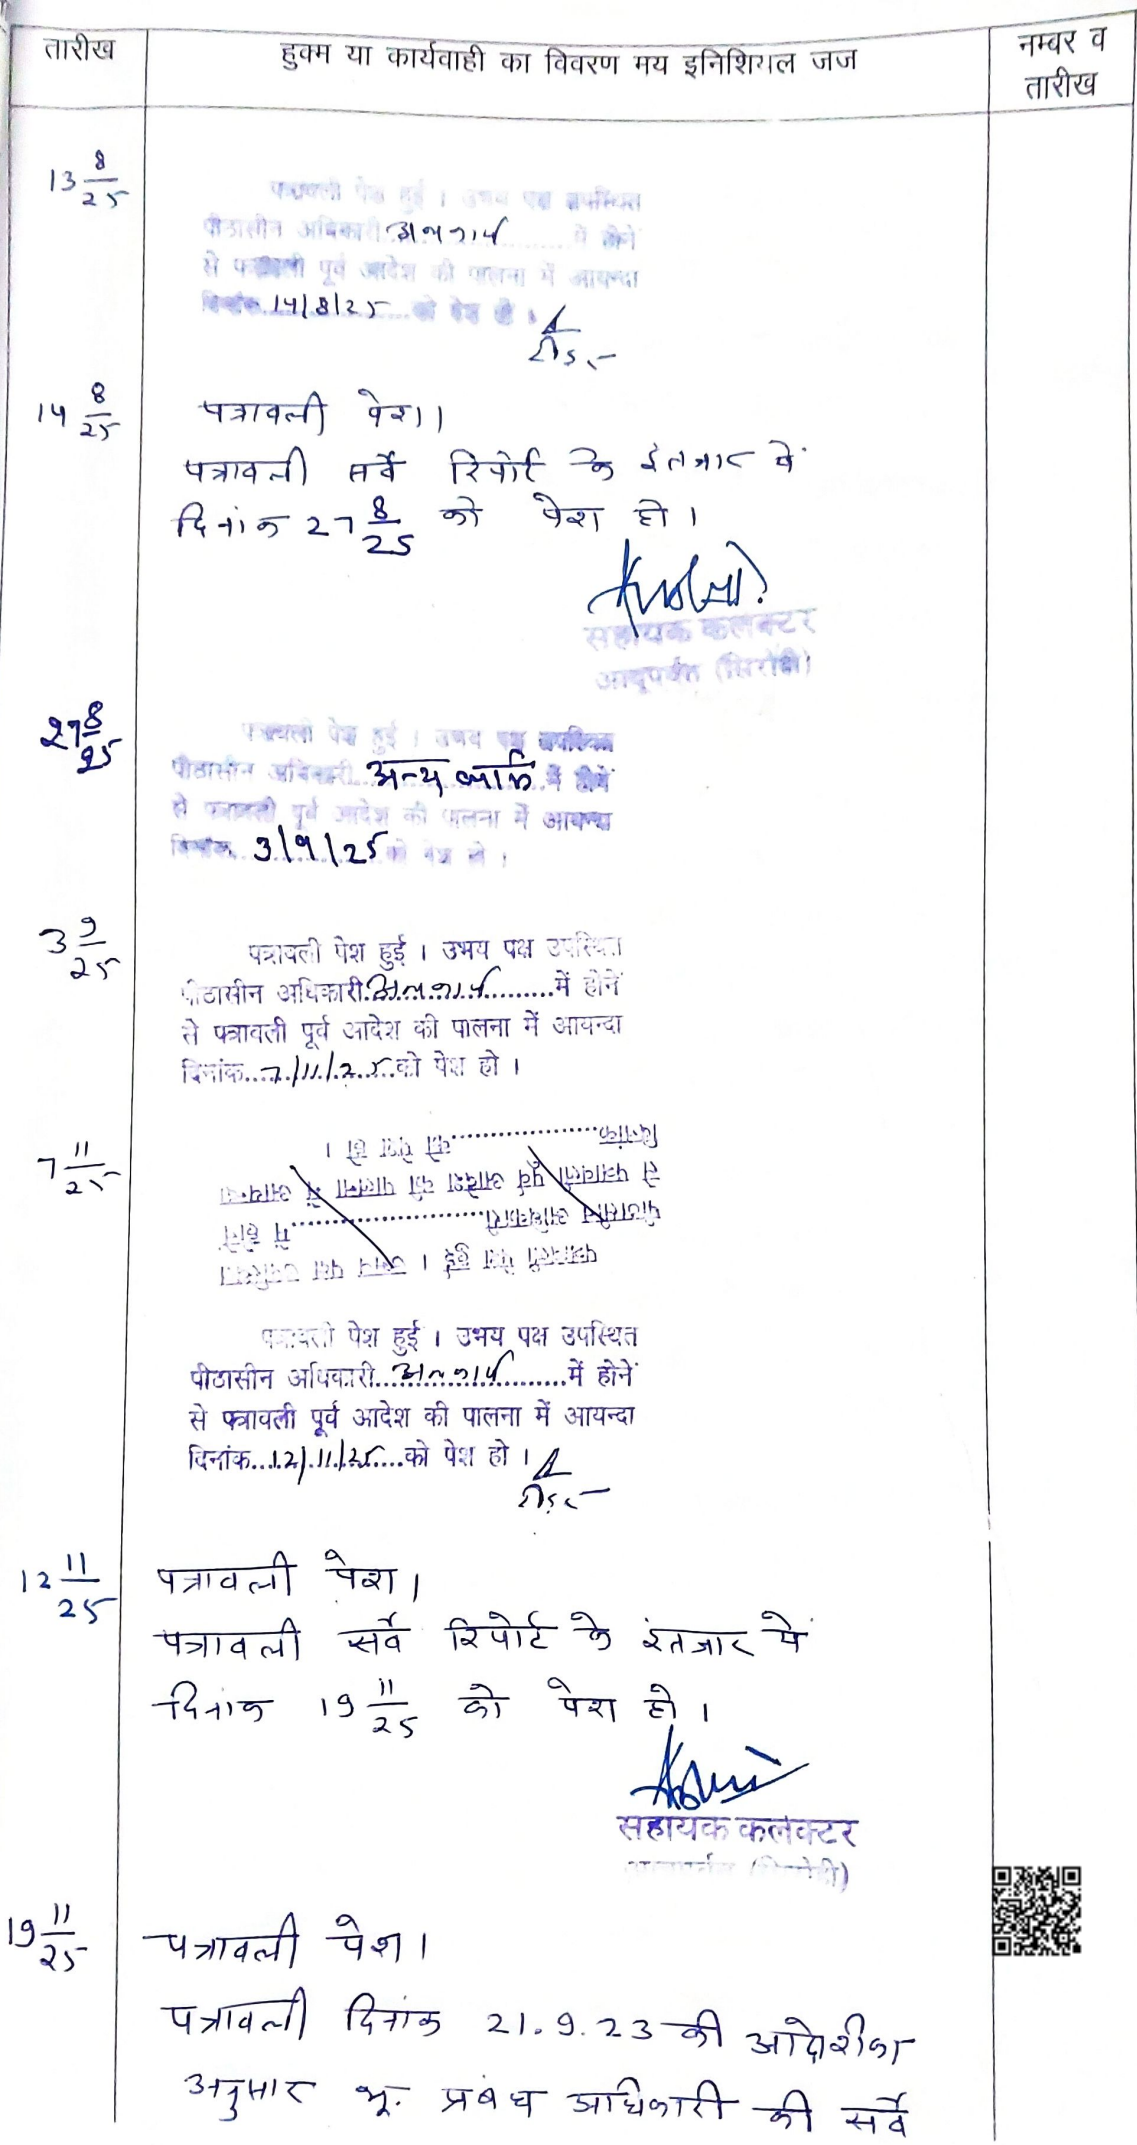 तारीख
हुक्म या कार्यवाही का विवरण मय इनिशियल जज
नम्बर व
तारीख
13 8/25
पत्रावली पेश हुई । उभय पक्ष उपस्थित
पीठासीन अधिकारी में होनें
से पत्रावली पूर्व आदेश की पालना में आयन्दा
दिनांक 14/8/25 को पेश हो ।
14 8/25
पत्रावली पेश।
पत्रावली सर्वे रिपोर्ट के इंतजार में
दिनांक 27 8/25 को पेश हो ।
सहायक कलक्टर
आबूपर्वत (सिरोही)
27 8/25
पत्रावली पेश हुई । उभय पक्ष उपस्थित
पीठासीन अधिकारी अन्य कार्य में होनें
से पत्रावली पूर्व आदेश की पालना में आयन्दा
दिनांक 3/9/25 को पेश हो ।
3 9/25
पत्रावली पेश हुई । उभय पक्ष उपस्थित
पीठासीन अधिकारी में होनें
से पत्रावली पूर्व आदेश की पालना में आयन्दा
दिनांक 7/11/25 को पेश हो ।
7 11/25
पत्रावली पेश हुई । उभय पक्ष उपस्थित
पीठासीन अधिकारी.................. में होनें
से पत्रावली पूर्व आदेश की पालना में आयन्दा
दिनांक..................को पेश हो ।
पत्रावली पेश हुई । उभय पक्ष उपस्थित
पीठासीन अधिकारी में होनें
से पत्रावली पूर्व आदेश की पालना में आयन्दा
दिनांक 12/11/25 को पेश हो ।
12 11/25
पत्रावली पेश।
पत्रावली सर्वे रिपोर्ट के इंतजार में
दिनांक 19 11/25 को पेश हो ।
सहायक कलक्टर
19 11/25
पत्रावली पेश।
पत्रावली दिनांक 21.9.23 की
अनुसार भू. प्रबंध अधिकारी की सर्वे